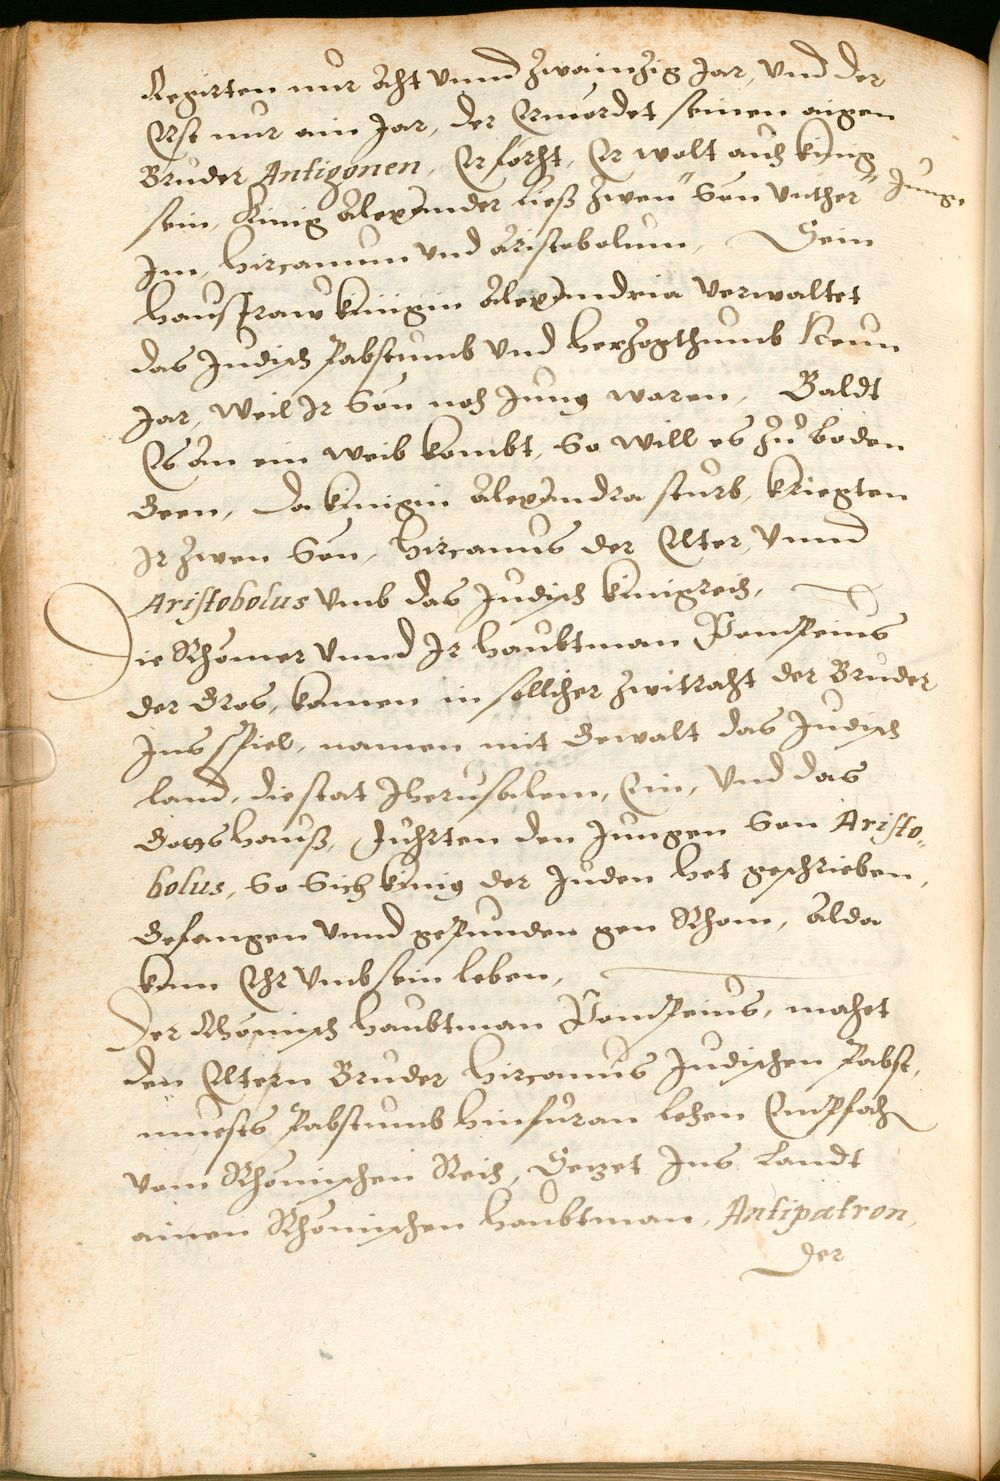 Regirten nur acht vnnd zwainzig Jar, vnd der
Erst nur ain Jar, der Ermordet seinen aigen
Bruder Antigonen, Er forcht, Er wolt auch king
sein, König Alexander ließ zwen Sön vnther Junge
Im, hircanum vnd Aristobolum, Sein
hausfraw künigin Alexandria verwaltet
das Judisch Pabstumb vnd herzogthumb Neun
Jar, Weil Ir Sön noch Jung waren, Baldt
Es an ein weib kombt, So will es zu boden
Geen, Da kinigin Alexandra sturb, kriegten
Ir zwen Sön, hircanus der Elter, vnnd
Aristobolus vmb das Judisch kinigreich,
Die Rhömer vnnd Ir haubtman Pompeius
der Gros, kamen in sollicher zwitracht der Bruder
Ins spiel, namen mit Gewalt das Judisch
land, die stat Jherusalem, Ein, vnd das
Gotshauß, Fuhrten den Jungen Son Aristo„
bolus, So Sich kinig der Juden het geschrieben,
Gefangen vnnd gepunden gen Rhom, alda
kam Ehr vmb sein leben,
Der Rhömisch haubtman Pompeius, machet
den Eltern Bruder hircanus Judischen Pabst,
muests Pabstumb hinfuran lehen Empfah
vom Rhömischen Reich, Setzet Ins Landt
ainen Rhömischen haubtman, Antipatron,
Der